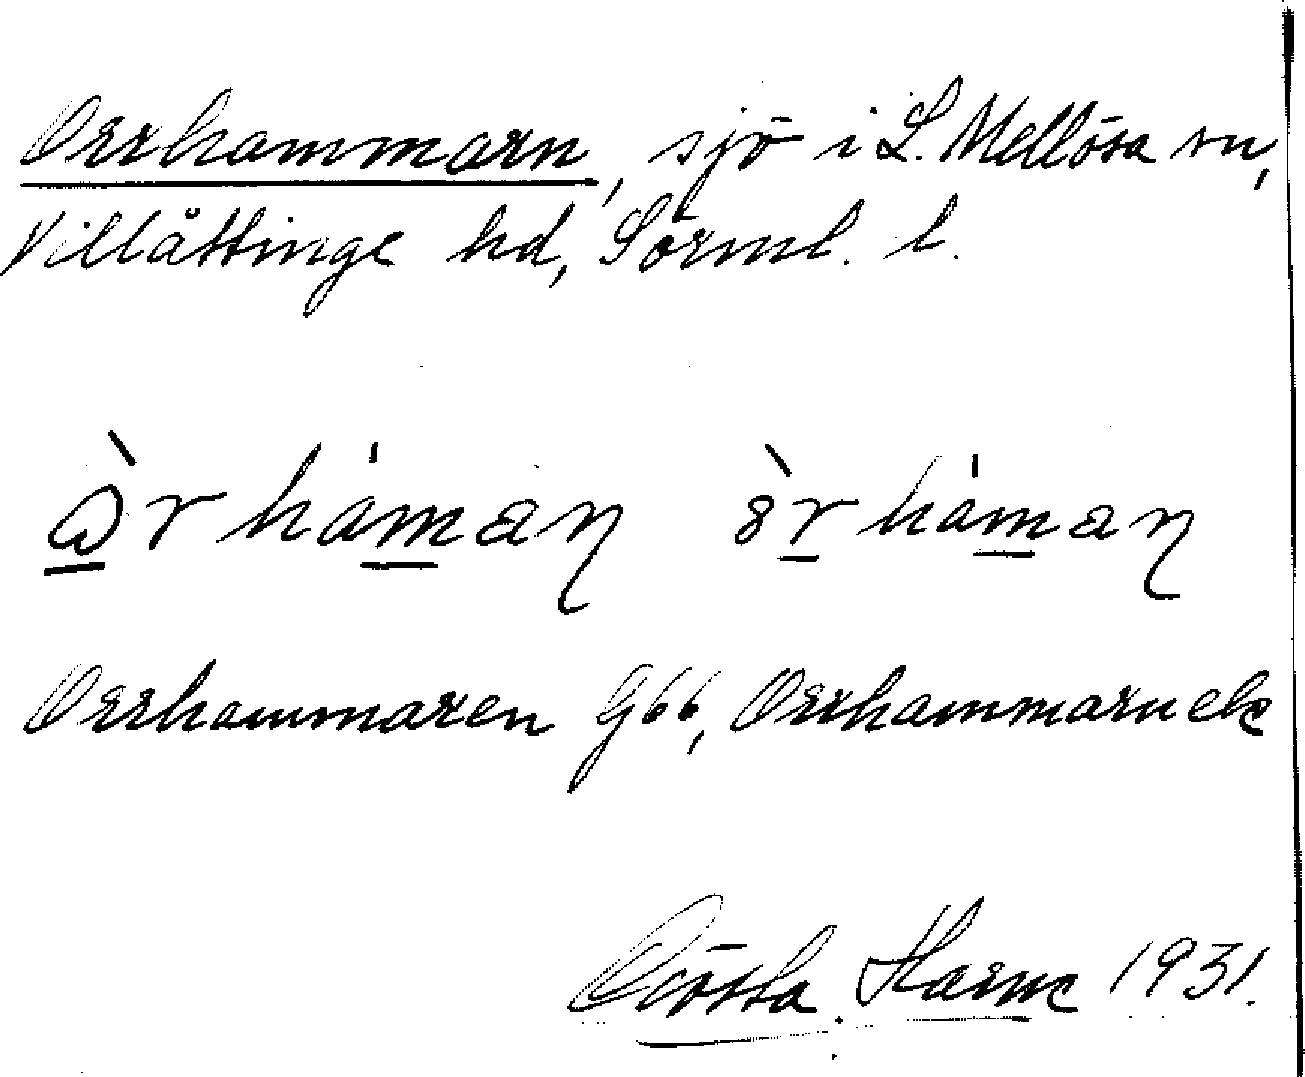 Orrhammarn, sjö i L. Mellösa sn,
Villåttinge hd, Sörml. l.
ò̱rhám̱an òṟhám̱an
Orrhammaren G66, Orrhammarn ek
Gösta Harne 1931.